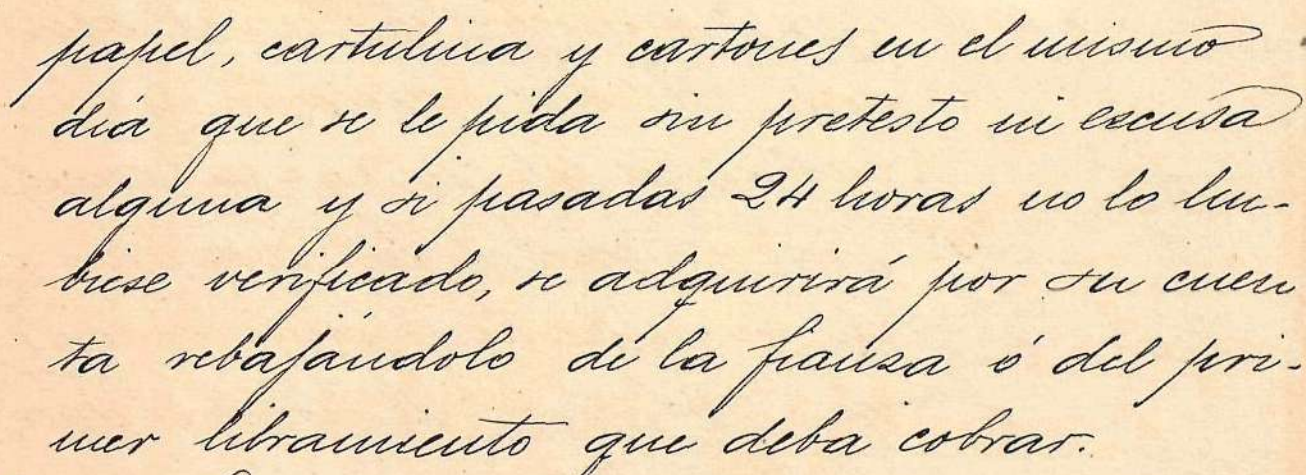 papel, cartulina y cartones en el mismo
dia que se le pida sin pretesto ni escusa
alguna y si pasadas 24 horas no lo hu-
biese verificado, se adquirirá por su cuen
ta rebajándolo de la fianza ó del pri-
mer libramiento que deba cobrar.